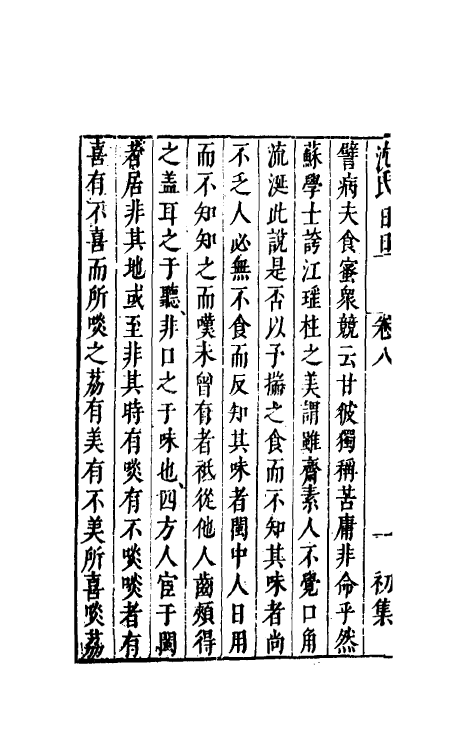 卷八
一
初集
譬病夫食蜜衆競云甘彼獨稱苦庸非命乎然
蘇學士誇江瑤柱之美謂雖齋素人不覺口角
流涎此說是否以予揣之食而不知其味者尚
不乏人必無不食而反知其味者閩中人日用
而不知知之而嘆未曾有者祗從他人齒頰得
之蓋耳之于聽非口之于味也四方人宦于閩
者居非其地或至非其時有啖有不啖啖者有
喜有不喜而所啖之荔有美有不美所喜啖荔